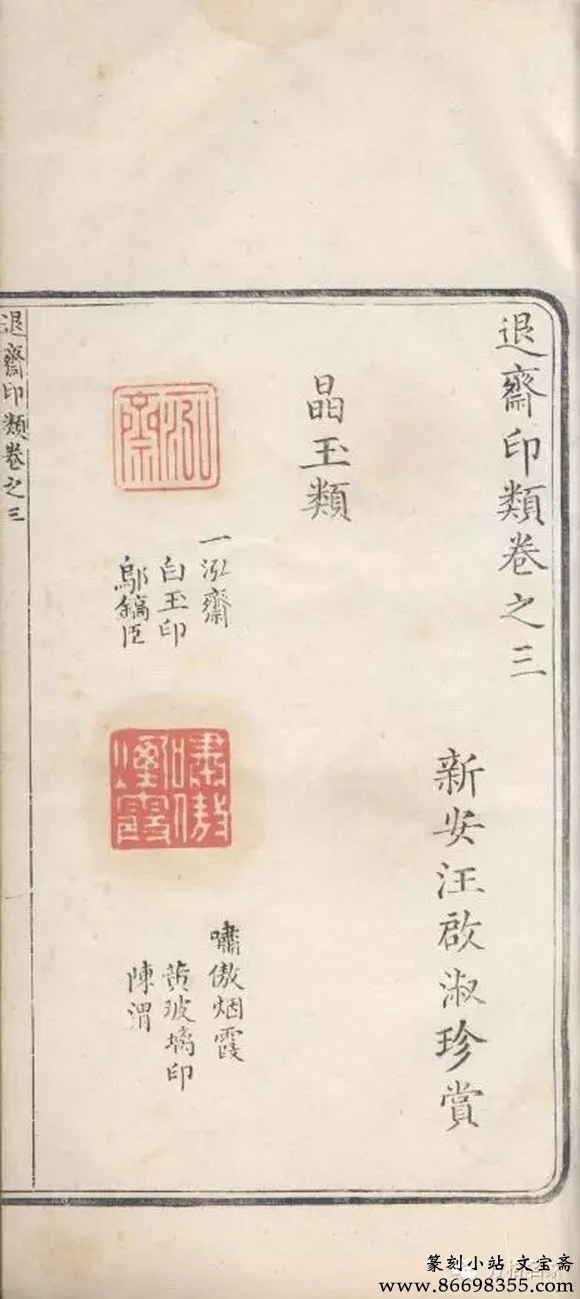 退齋印類卷之三
新安汪啟淑珍賞
晶玉類
泓齋
一泓齋
白玉印
鄔鎬臣
嘯傲煙霞
嘯傲烟霞
黄玻璃印
陳渭
退齋印類卷之三
篆刻小站 文宝斋
www.86698355.com